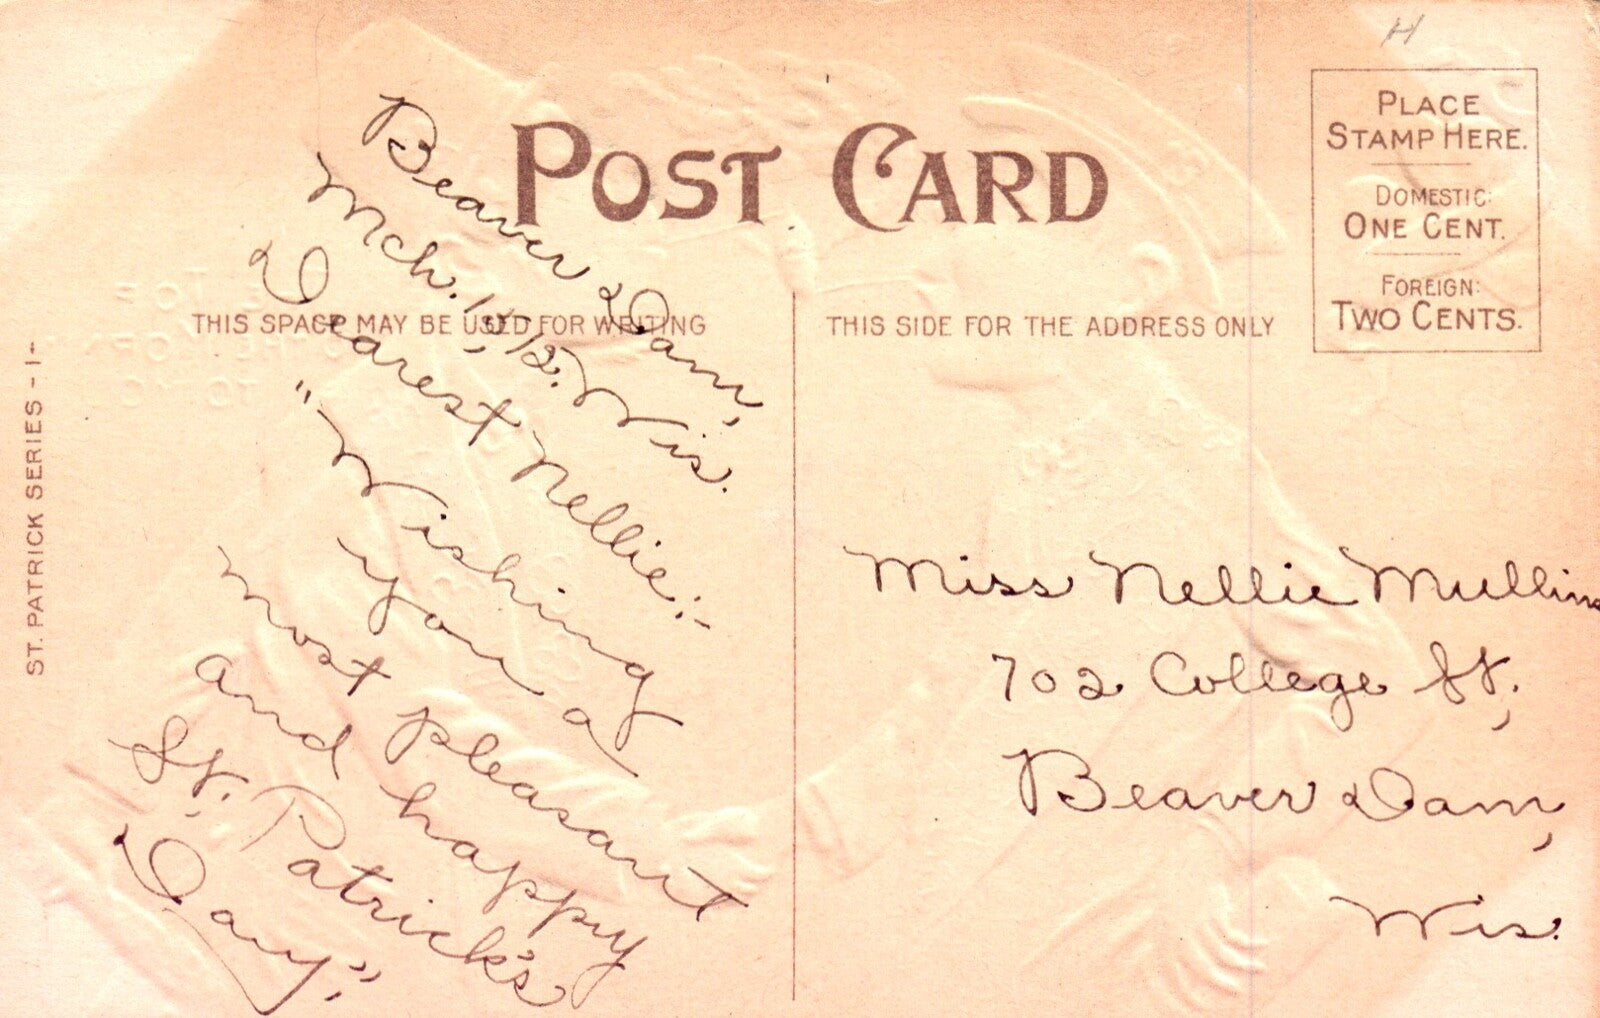 H
POST CARD
PLACE
STAMP HERE.
DOMESTIC:
ONE CENT.
FOREIGN:
TWO CENTS.
THIS SPACE MAY BE USED FOR WRITING
THIS SIDE FOR THE ADDRESS ONLY
ST. PATRICK SERIES - 1 -
Beaver Dam,
Mch. 15, '12. Wis.
Dearest Nellie:-
"Wishing
you a
most pleasant
and happy
St. Patrick's
Day",
Miss Nellie Mullins
702 College St.,
Beaver Dam,
Wis.